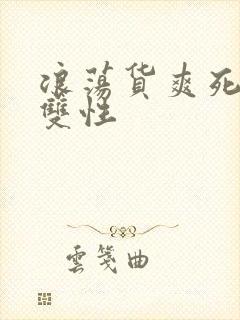 浪蕩货爽死
雙性
雲箋曲